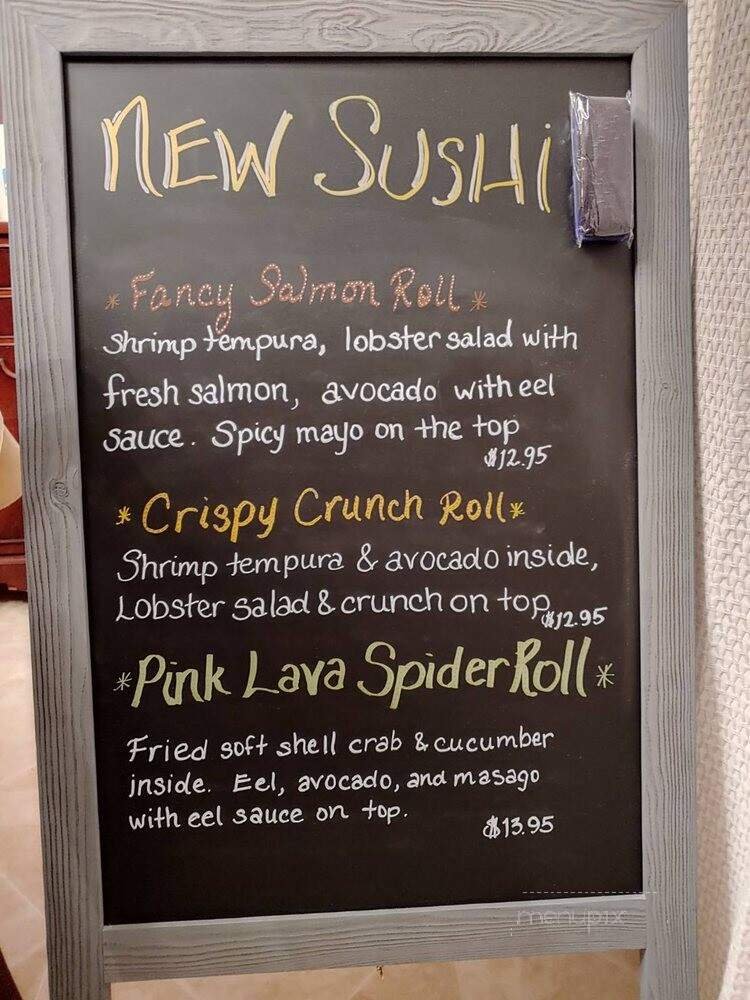 NEW SUSHi
*Fancy Salmon Roll*
Shrimp tempura, lobster salad with
fresh salmon, avocado with eel
sauce. Spicy mayo on the top
$12.95
*Crispy Crunch Roll*
Shrimp tempura & avocado inside,
Lobster salad & crunch on top
$12.95
*Pink Lava Spider Roll*
Fried soft shell crab & cucumber
inside. Eel, avocado, and masago
with eel sauce on top.
$13.95
menupix